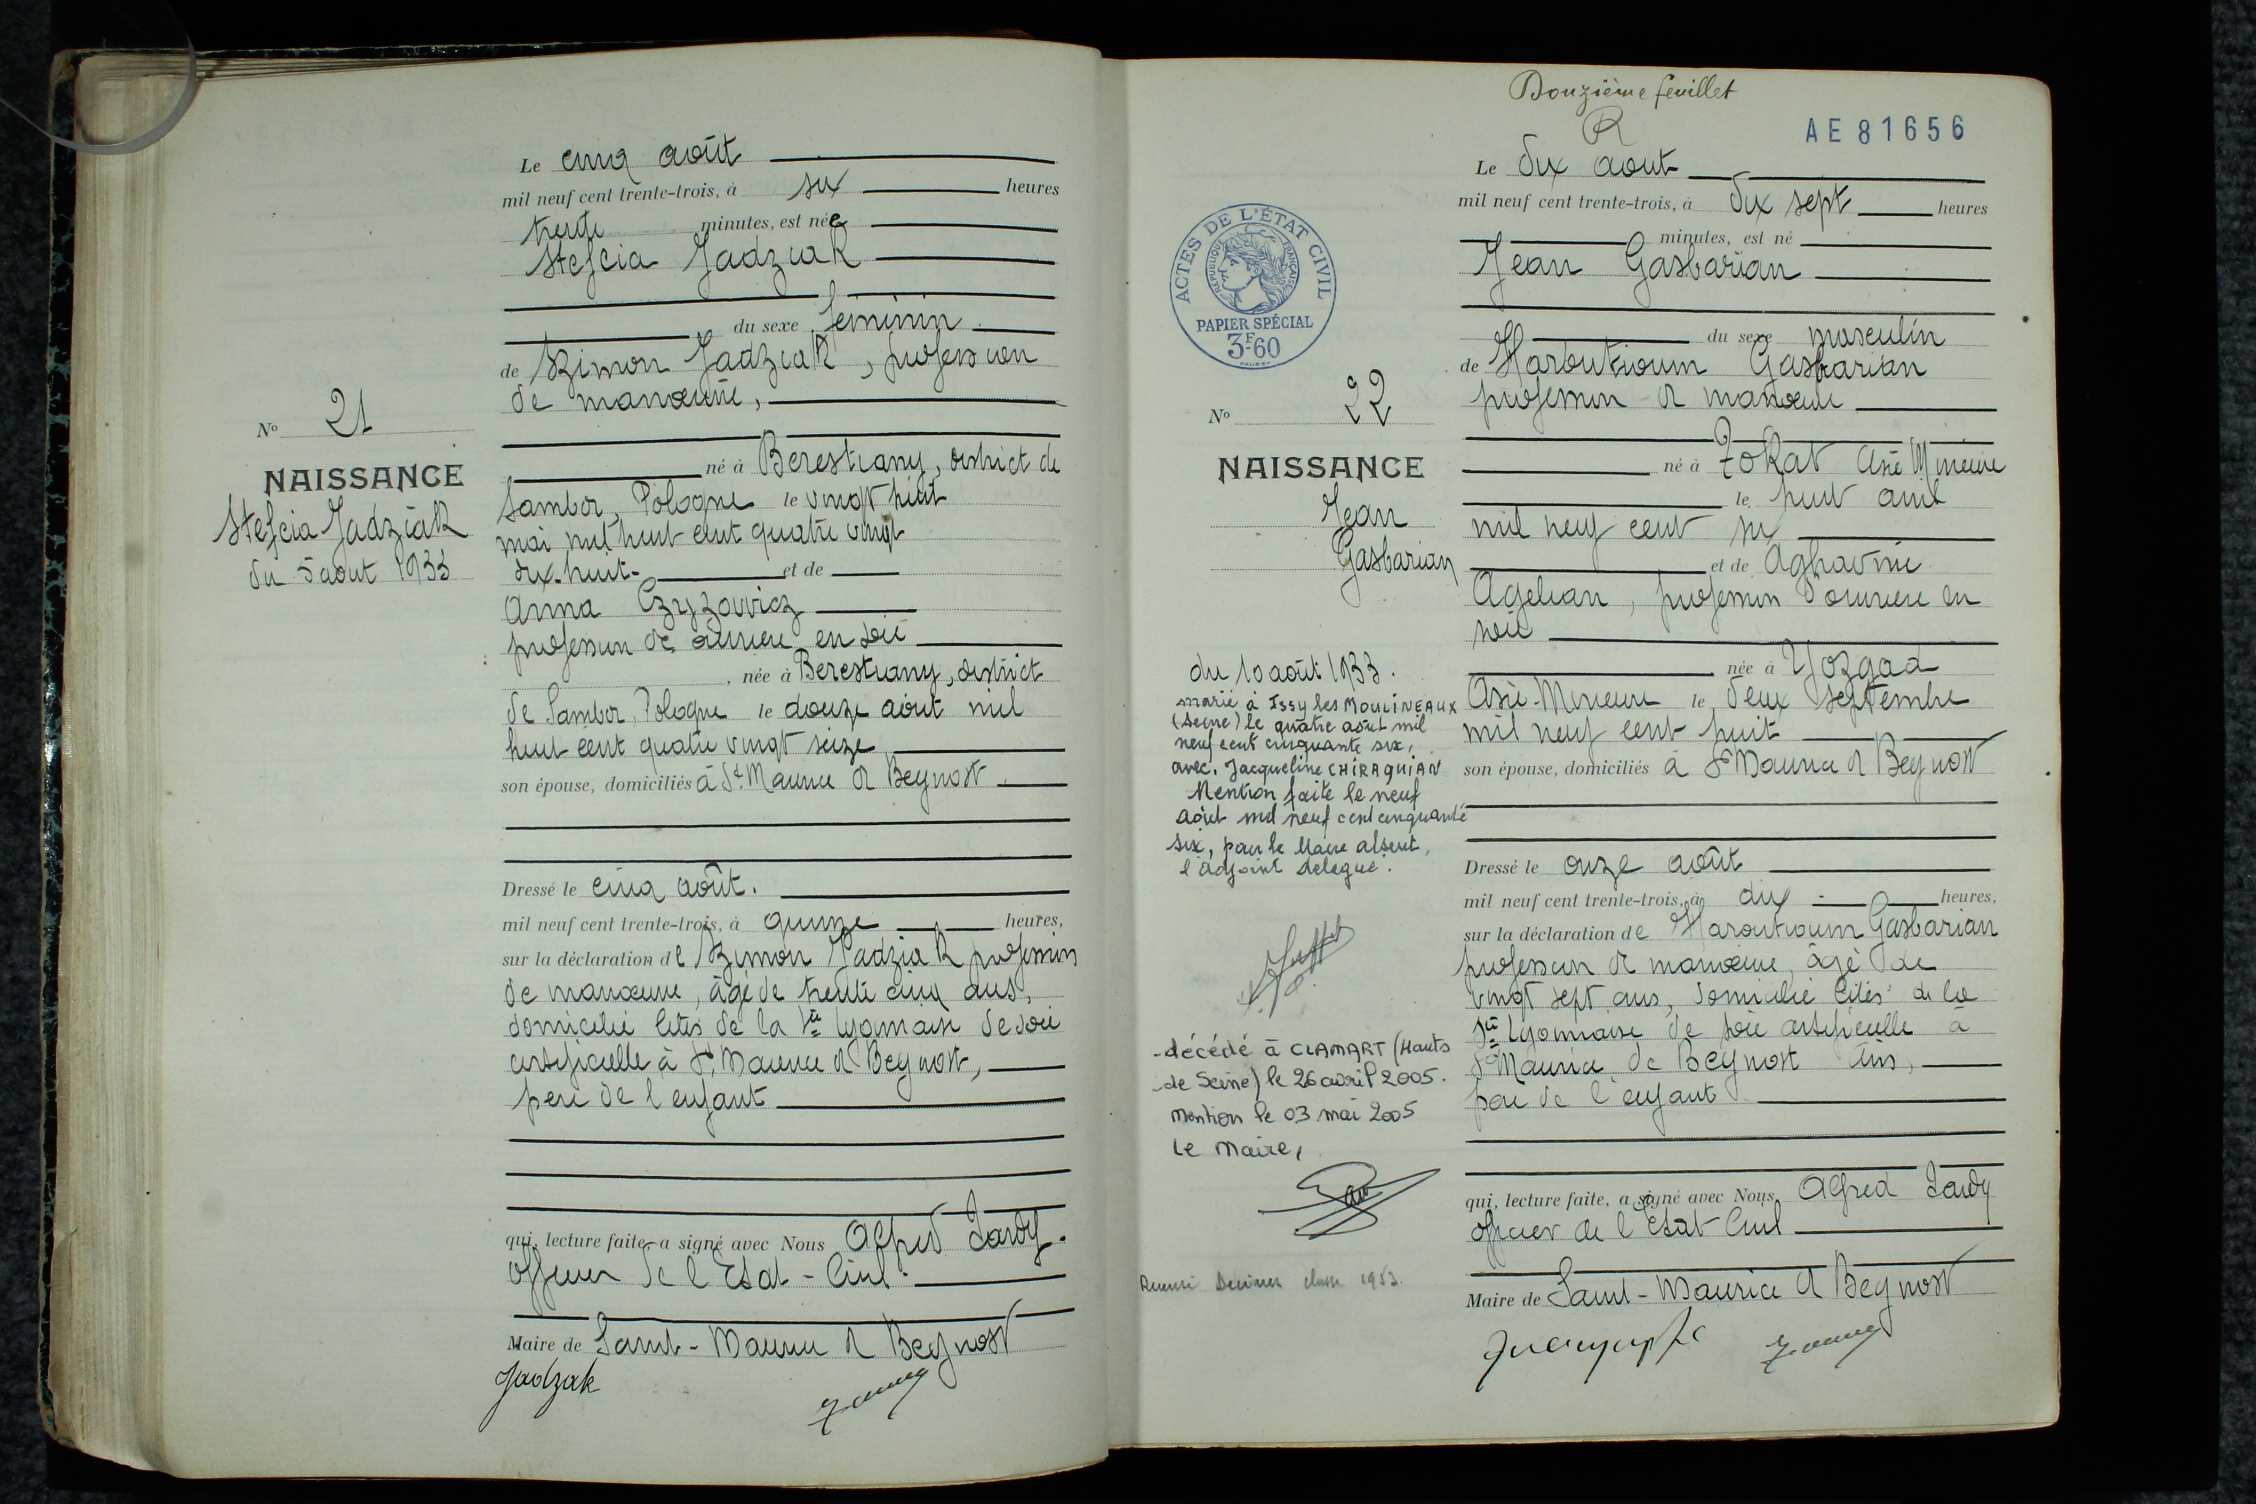 Le cinq août
mil neuf cent trente-trois, à six heures
trente minutes, est née
Stefcia Jadziak
du sexe féminin
de Szimon Jadziak, profession
de manœuvre,
né à Berestiany, district de
Sambor, Pologne le vingt huit
mai mil huit cent quatre vingt
dix-huit- et de
Anna Czyzowicz
profession de ouvrière en soie
, née à Berestiany, district
de Sambor, Pologne le douze août mil
huit cent quatre vingt seize,
son épouse, domiciliés à St Maurice de Beynost.
Dressé le cinq août.
mil neuf cent trente-trois, à quinze heures,
sur la déclaration de Szimon Jadziak profession
de manœuvre, âgé de trente cinq ans,
domicilié cités de la Sté Lyonnaise de soie
artificielle à St Maurice de Beynost,
père de l'enfant
qui, lecture faite, a signé avec Nous Alfred
Officier de l'Etat-Civil.
Maire de Saint-Maurice de Beynost
Jadzak
No 21
NAISSANCE
Stefcia Jadziak
du 5 août 1933
Douzième feuillet
R
AE 81656
Le dix aout
mil neuf cent trente-trois, à dix sept heures
minutes, est né
Jean Gasbarian
du sexe masculin
de Haroutioum Gasbarian
profession de manœuvre
né à Tokat Asie Mineure
le huit avril
mil neuf cent six
et de Aghavnie
Agelian, profession d'ouvrière en
soie
née à Yozgad
Asie-Mineure le deux septembre
mil neuf cent huit
son épouse, domiciliés à St Maurice de Beynost
Dressé le onze août
mil neuf cent trente-trois, à dix heures,
sur la déclaration de Haroutioum Gasbarian
profession de manœuvre, âgé de
vingt sept ans, domicilié cités de la
Sté Lyonnaise de soie artificielle à
St Maurice de Beynost Ain,
père de l'enfant
qui, lecture faite, a signé avec Nous Alfred
officier de l'Etat-Civil
Maire de Saint-Maurice de Beynost
ACTES DE L'ÉTAT CIVIL
RÉPUBLIQUE FRANÇAISE
PAPIER SPÉCIAL
3F60
No 22
NAISSANCE
Jean
Gasbarian
du 10 août 1933.
marié à Issy les MOULINEAUX
(Seine) le quatre août mil
neuf cent cinquante six,
avec, Jacqueline CHIRAQUIAN
Mention faite le neuf
août mil neuf cent cinquante
six, pour le Maire absent,
l'adjoint délégué.
-décédé à CLAMART (Hauts
de Seine) le 26 avril 2005.
mention le 03 mai 2005
Le Maire,
classe 1953.